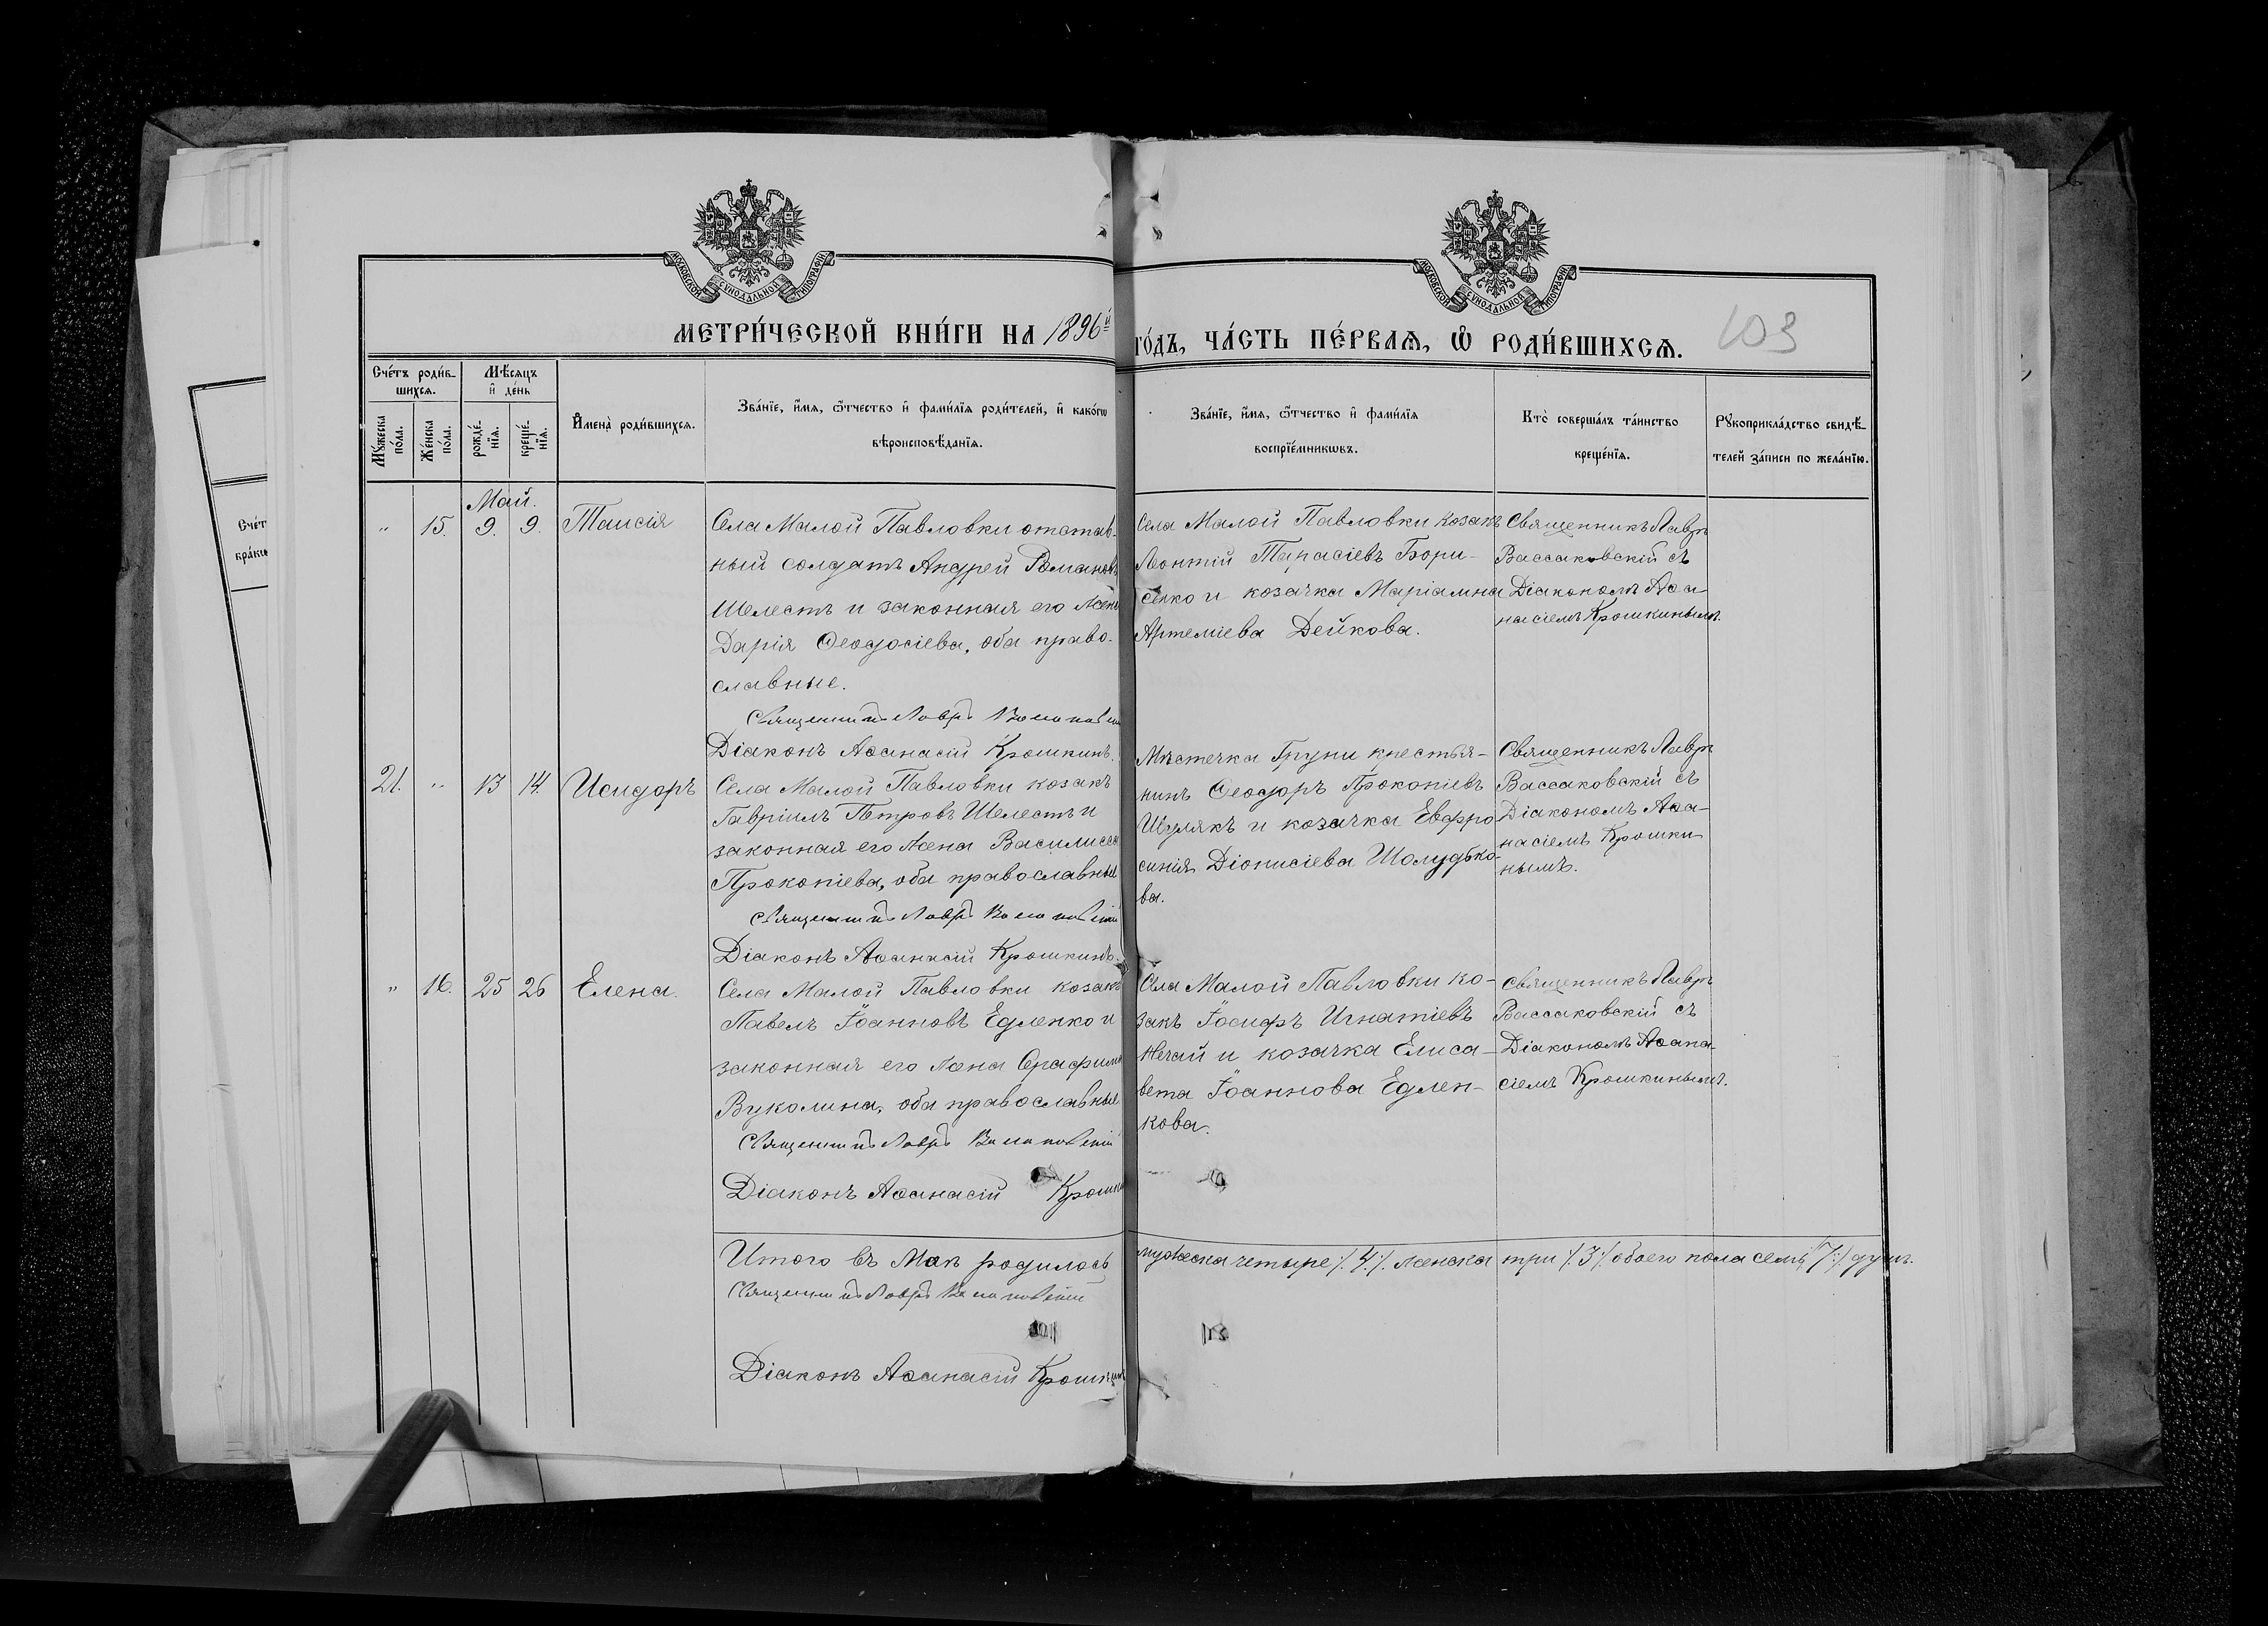 МОСКОВСКОЙ СУНОДАЛЬНОЙ ТИПОГРАФІИ
МОСКОВСКОЙ СУНОДАЛЬНОЙ ТИПОГРАФІИ
МЕТРИ́ЧЕСКОЙ КНИ́ГИ НА 1896й
ГО́ДЪ, ЧА́СТЬ ПЕ́РВАѦ, Ѡ҆ РОДИ́ВШИХСѦ.
103
Сче́тъ роди́в-
шихсѧ.
Мѣ́сѧцъ
и҆ де́нь
Мꙋ́жеска
по́ла.
Же́нска
по́ла.
рожде́-
нїѧ.
креще́-
нїѧ.
И҆мена̀ роди́вшихсѧ.
Зва́нїе, и҆́мѧ, ѻ҆́тчество и҆ фами́лїѧ роди́телей, и҆ како́гѡ
вѣроисповѣ́данїѧ.
Зва́нїе, и҆́мѧ, ѻ҆́тчество и҆ фами́лїѧ
воспрїе́мникѡвъ.
Кто̀ соверша́лъ та́инство
креще́нїѧ.
Рꙋкоприкла́дство свидѣ́-
телей за́писи по жела́нїю.
Счет
браки
Май.
" 15. 9. 9. Таисія
Села Малой Павловки отстав-
ный солдатъ Андрей Романовъ
Шелестъ и законная его жена
Дарія Ѳеодосіева, оба право-
славные.
Священникъ Лавръ Вассаковскій
Діаконъ Аѳанасій Крошкинъ.
Села Малой Павловки козакъ
Леонтій Тарасіевъ Бори-
сенко и козачка Маріамна
Артеміева Дейкова.
Священникъ Лавръ
Вассаковскій съ
Діакономъ Аѳа-
насіемъ Крошкинымъ.
21. " 13 14. Исидоръ
Села Малой Павловки козакъ
Гавріилъ Петровъ Шелестъ и
законная его жена Василисса
Прокопіева, оба православные
Священникъ Лавръ Вассаковскій
Діаконъ Аѳанасій Крошкинъ.
Мѣстечка Груни крестья-
нинъ Ѳеодоръ Прокопіевъ
Шулякъ и козачка Евфро-
синія Діонисіева Шолудько-
ва.
Священникъ Лавръ
Вассаковскій съ
Діакономъ Аѳа-
насіемъ Крошки-
нымъ.
" 16. 25 26 Елена.
Села Малой Павловки козакъ
Павелъ Іоанновъ Едленко и
законная его жена Серафима
Вуколина, оба православные
Священникъ Лавръ Вассаковскій
Діаконъ Аѳанасій Крошки
Села Малой Павловки ко-
закъ Іосифъ Игнатіевъ
Нечай и козачка Елиса-
вета Іоаннова Едлен-
кова.
Священникъ Лавръ
Вассаковскій съ
Діакономъ Аѳана-
сіемъ Крошкинымъ.
Итого въ Маѣ родилось мужеска четыре /.4./. женска три /.3/. обоего пола семь /7./. душъ.
Священникъ Лавръ Вассаковскій
Діаконъ Аѳанасій Крошкинъ